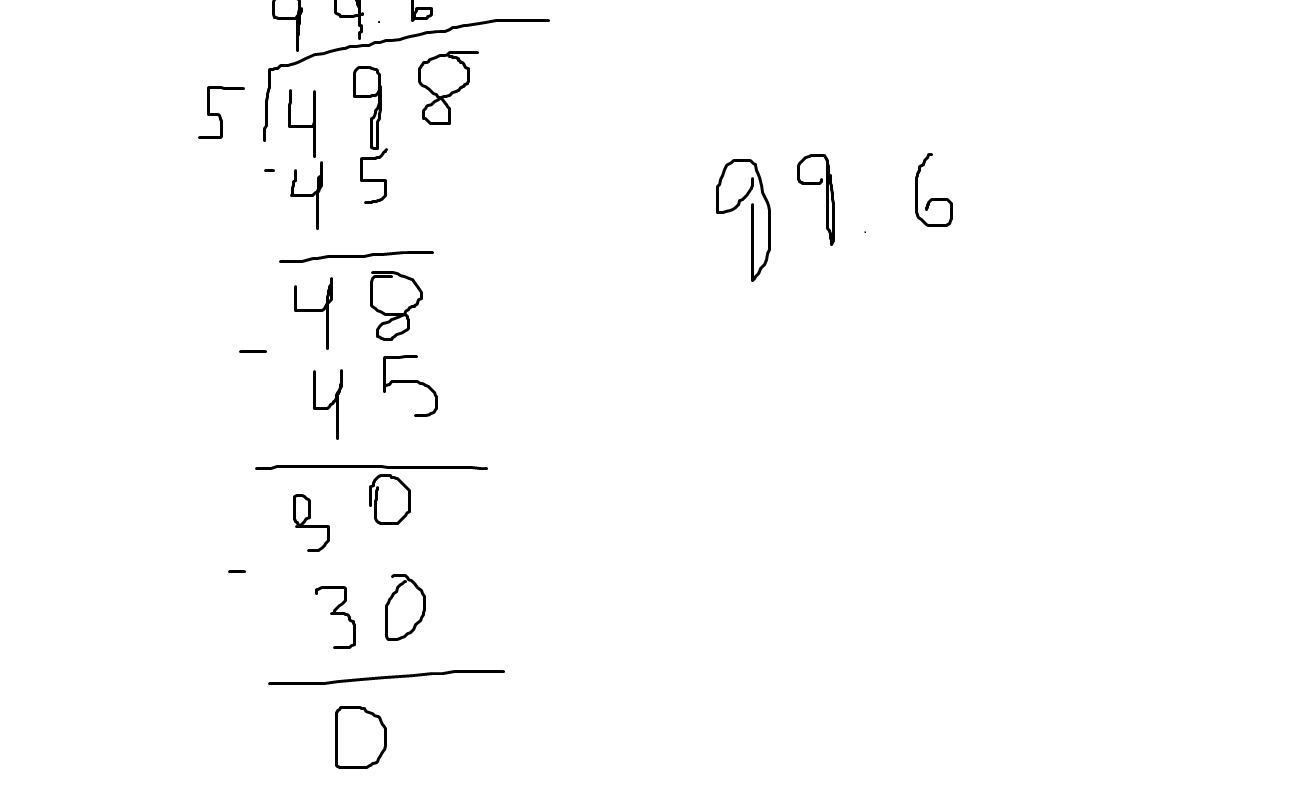 99.6
5 498
- 45
48
- 45
30
- 30
0
99.6